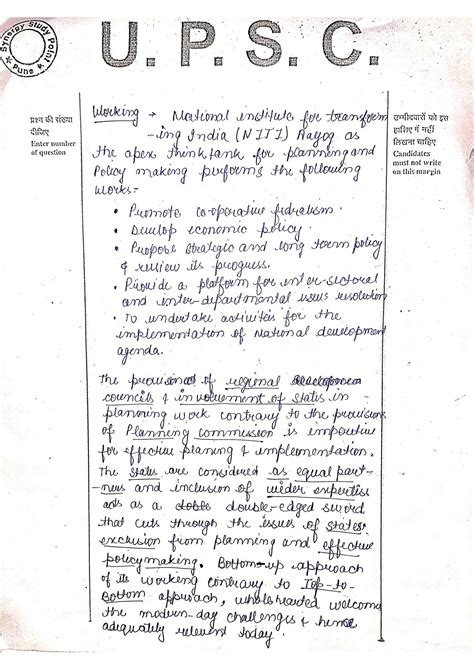 Synergy Study Point
Pune
U.P.S.C.
प्रश्न की संख्या
दीजिए
Enter number
of question
उम्मीदवारों को इस
हाशिए में नहीं
लिखना चाहिए
Candidates
must not write
on this margin
Working → National institute for transform
-ing India (NITI) Aayog as
the apex think tank for planning and
Policy making performs the following
works:-
• Promote co-operative fedralism.
• Develop economic policy.
• Propose strategic and long term policy
& review its progress.
• Provide a platform for inter-sectoral
and inter-departmental issues resolution
• To undertake activities for the
implementation of National development
agenda.
The provisions of regional
councils & involvement of states in
planning work contrary to the provisions
of Planning commission is imperative
for effective planing & implementation.
The states are considered as equal part-
-ners and inclusion of wider expertise
acts as a double-edged sword
that cuts through the issues of states
exclusion from planning and effective
policymaking. Bottom-up approach
of its working contrary to Top-to-
Bottom approach, wholehearted welcome
the modern-day challenges & hence
adequately relevent today.